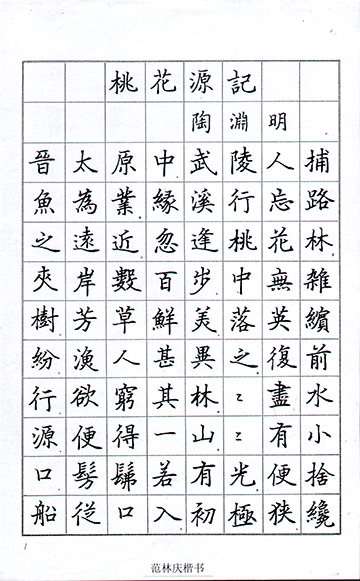 桃花源記
陶淵明
晉太原中武陵人捕
魚為業緣溪行忘路
之遠近忽逢桃花林
夾岸數百步中無雜
樹芳草鮮美落英繽
紛漁人甚異之復前
行欲窮其林〻盡水
源便得一山〻有小
口髣髴若有光便捨
船從口入初極狹纔
1
范林庆楷书